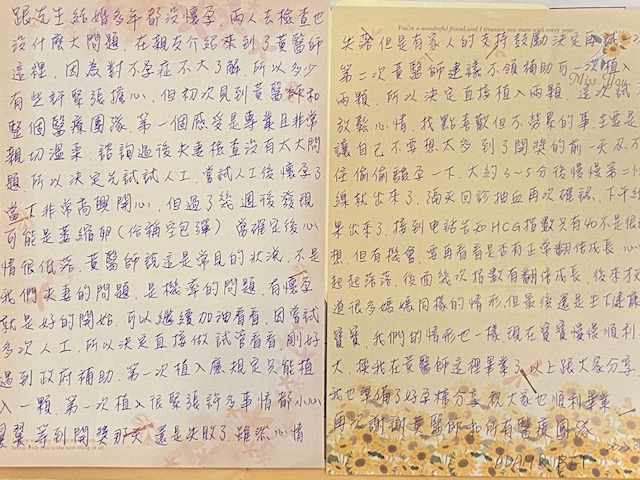 跟先生結婚多年都沒懷孕,兩人去檢查也
沒什麼大問題,在親友介紹來到了黃醫師
這裡,因為對不孕症不大了解,所以多少
有些許緊張擔心,但初次見到黃醫師和
整個醫療團隊,第一個感受是專業且非常
親切溫柔,諮詢過後夫妻檢查沒有太大問
題,所以決定先試試人工,嘗試人工後懷孕了
當下非常高興開心,但過了幾週後發現
可能是萎縮卵(俗稱空包彈),當確定後心
情很低落,黃醫師說這是常見的狀況,不是
我們夫妻的問題,是機率的問題,有懷孕
就是好的開始,可以繼續加油看看,因嘗試
多次人工,所以決定直接做試管看看,剛好
遇到政府補助,第一次植入應規定只能植
入一顆,第一次植入很緊張許多事情都小心
翼翼,等到開獎那天,還是失敗了,雖然心情
You're a wonderful friend, and I treasure you more with every year.
Miss You
失落但是有家人的支持鼓勵決定再試一次
第二次黃醫師建議不領補助可一次植入
兩顆,所以決定直接植入兩顆,這次試
放鬆心情,找點喜歡但不勞累的事,主要是
讓自己不要想太多,到了開獎的前一天忍不
住偷偷驗孕一下,大約3~5分後慢慢第二條
線就出來了,隔天回診抽血再次確認,下午結
果出來了,接到電話告知HCG指數只有40不是很理
想,但有機會,要再看看是否有正常翻倍成長,心
起起落落,後面幾次指數有翻倍成長,後來才知
道很多媽媽同樣的情形但最後還是生下健康
寶寶,我們的情形也一樣,現在寶寶慢慢順利
大,換我在黃醫師這裡畢業了,以上跟大家分享,
我也準備了好孕棉分享,祝大家也順利畢業
再次謝謝黃醫師和所有醫療團隊